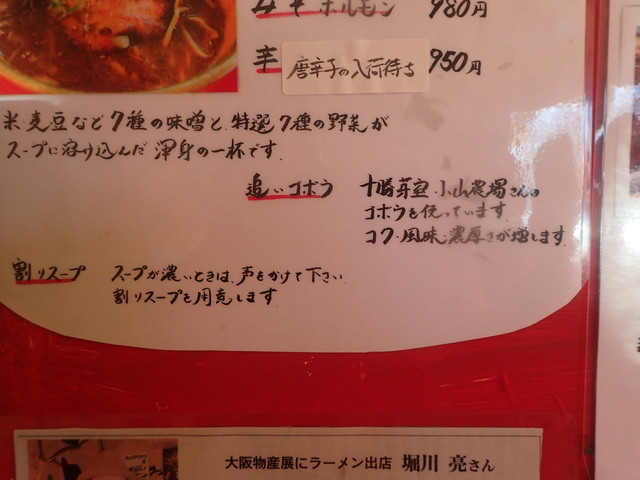 みそホルモン 980円
辛
唐辛子の入荷待ち
950円
米・麦・豆など7種の味噌と、特選7種の野菜が
スープに溶け込んだ渾身の一杯です。
追いゴボウ 十勝芽室・小山農場さんの
ゴボウを使っています。
コク・風味・濃厚さが増します。
割りスープ スープが濃いときは、声をかけて下さい。
割りスープを用意します。
大阪物産展にラーメン出店 堀川 亮さん